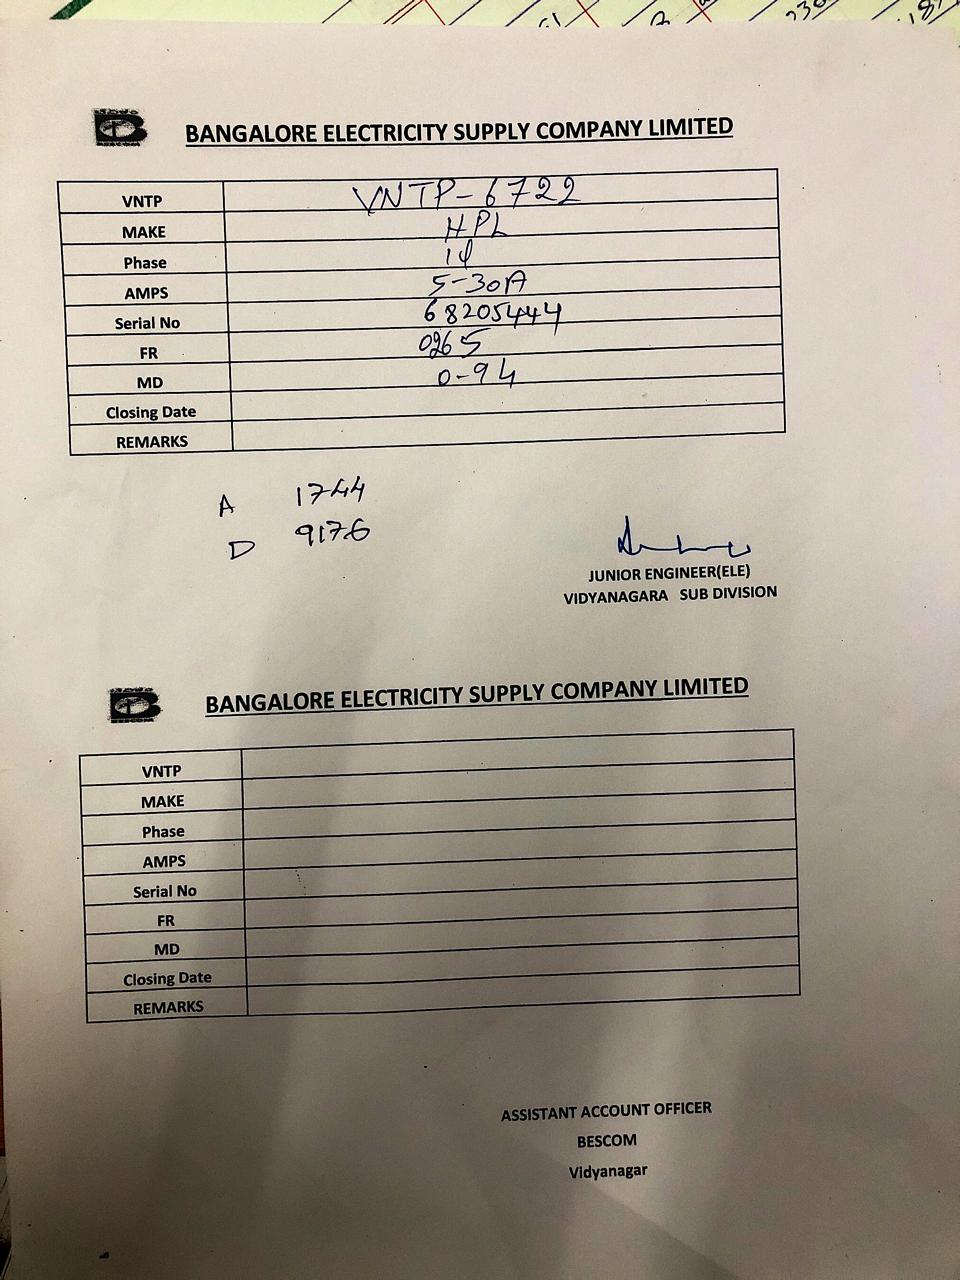 BESCOM
BANGALORE ELECTRICITY SUPPLY COMPANY LIMITED
VNTP VNTP-6722
MAKE HPL
Phase 1ϕ
AMPS 5-30A
Serial No 68205444
FR 0265
MD 0-94
Closing Date
REMARKS
A 1744
D 9176
JUNIOR ENGINEER(ELE)
VIDYANAGARA SUB DIVISION
BESCOM
BANGALORE ELECTRICITY SUPPLY COMPANY LIMITED
VNTP
MAKE
Phase
AMPS
Serial No
FR
MD
Closing Date
REMARKS
ASSISTANT ACCOUNT OFFICER
BESCOM
Vidyanagar